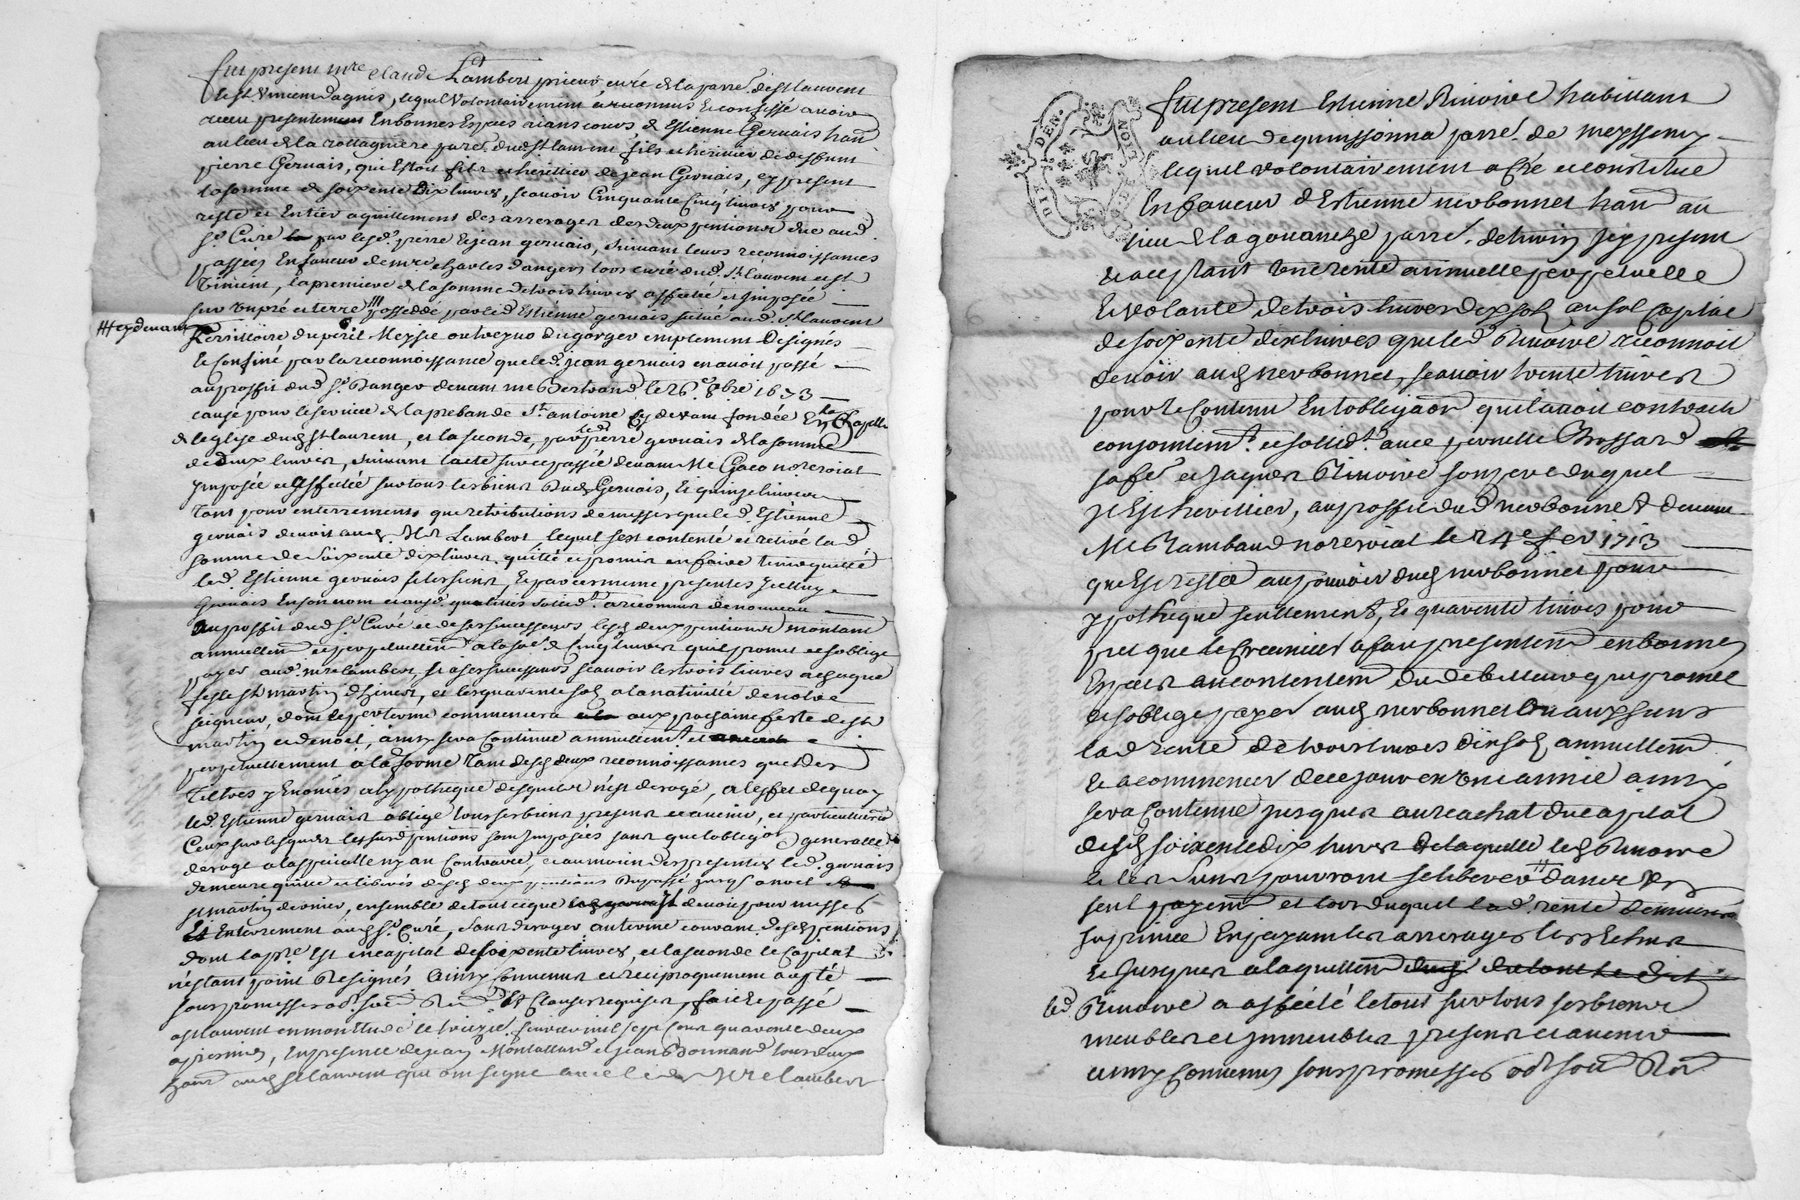 fut present mre Claude Lambert prieur curé de la parr. de st laurent
et st Vincent dagnis, lequel volontairement a reconnu et confessé avoir
receu presentement En bonnes Espèces aians cours, de Estienne Gervais han
au lieu de la parr. dud st laurent fils et heritier de deffunt
pierre Gervais, qui Estoit fils et heritier de jean Gervais, cy present
la somme de soixente dix livres, scavoir Cinquante Cinq livres pour
reste et Entier aquittement des arrerages des deux pentions due aud.
sr Curé par lesd. pierre et jean gervais, suivant leurs reconnoissances
passées En faveur de mre charles dangers lors curé dud. st laurent et st
Vincent, la premiere de la somme de trois livres affectée et imposée
sur un pré et terre possedée par led Estienne gervais situé aud. st laurent
cy devant
territoire du petit Meysie ou amplement Designés
et Confiné par la reconnoissance que led. jean gervais en avoit passé
au proffit dud sr Danger devant me Bertrand le 26e 8bre 1673
causé pour le service de la prebande st antoine cy devant fondée En la Chapelle
de leglise dud st laurent, et la seconde, par led pierre gervais de la somme
de deux livres, suivant lacte sur ce passée devant Me not roial
imposée et affectée sur tous les biens dud Gervais, Et quinze livres
tant pour enterrements que retributions de messes que led. Estienne
gervais devoit aud mre Lambert, lequel sest contenté et retiré lad
somme de soixente dix livres, quitté et promis en faire tenir quitte
led. Estienne gervais et les siens, Et par ces mesme presentes Icelluy
Gervais En son nom et ausd. qualités solid. a reconnu de nouveau
au proffit dud sr Curé et de ses successeurs lesd deux pentions montant
annuellem et perpetuellem a la som de Cinq livres quil promet et soblige
payer aud. mre lambert, et a ses successeurs scavoir les trois livres a chaque
feste st martin dhiver, et les quarante sols a la nativité de notre
seigneur, dont le pr terme commencera aux prochaine feste de st
martin et de noel, ainsy sera Continué annuellemt et
perpetuellement a la forme tant desd deux reconnoissances que des
Titres y Enoncés a lypotheque desquels nest derogé, a leffet de quoy
led. Estienne gervais oblige tous ses biens presens et avenir, et particulierem
Ceux sur lesquels lesd pentions sont imposées sans que lobligaon generalle
deroge a la specialle ny au Contraire, et au moien des presentes led. gervais
demeure quitte et liberés desd deux pentions du passé jusqu a noel
st martin dernier, ensemble de tout ce que devoit pour messes
Et Enterrement aud sr Curé, sans deroger au terme courant desd pentions
dont la pre Est en capital de soixente livres, et la seconde le Capital
nestant point Designés Ainsy Convenu et reciproquement accepté
sous promesses obl. soum. Ren. Et Clauses requises, fait et passé
a st laurent en le treizie. fevrier mil sept Cent quarante deux
apresmidy, En presence de jean Montalland et jean Bonnand tous deux
hans aud st laurent qui ont signé avec led Mre lambert
DIT DEN. LION
fut present Estienne Rivoire habittant
au lieu de quinssonna parr. de meyssemy
lequel volontairement a crée et constitué
En faveur dEstienne nerbonnet han au
lieu de la gouanche parr. de cy present
et acceptant une rente annuelle perpetuelle
Et volante de trois livres dix sols au sol Capital
de soixente dix livres que led Rivoire reconnoit
devoir aud nerbonnet, scavoir trente livres
pour le Contenu En lobligaon quil avoit contracté
conjointemt et solidt avec pernette Brossard
sa fe et jaques Rivoire son pere duquel
Il Est heritier, au proffit dud nerbonnet devant
Me Rambaud not roial le 24e fev 1713
que Est resté au pouvoir dud nerbonnet pour
ypotheque seullement, Et quarente livres pour
pret que le Creancier a fait presentem en bonnes
Espèces au contentem du debitteur qui promet
et soblige payer aud nerbonnet ou aux siens
lad rente de trois livres dix sols annuellem
Et a commencer de ce jour en une année ainsy
sera Continué jusques au reachat du Capital
desd soixente dix livres de laquelle led Rivoire
et les siens pourront se liberer dans Un
seul payem et lors duquel lad. rente demeurera
suprimée En payant les arrerages lors Echus
Et jusques a laquellem dud
led. Rivoire a affecté le tout sur tous ses biens
meubles et immeubles presens et avenir
ainsy Convenus sous promesses obl soum Ren